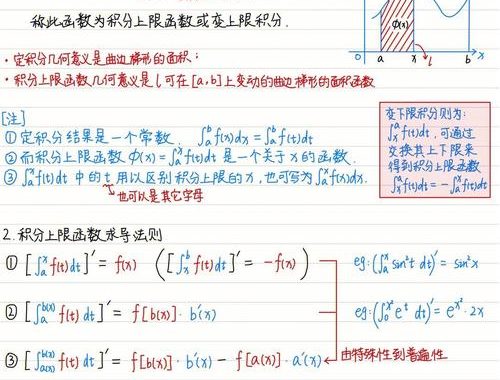 称此函数为积分上限函数或变上限积分.
ϕ(x)
0 a x l b x
·定积分几何意义是曲边梯形的面积;
·积分上限函数几何意义是l可在[a,b]上变动的曲边梯形的面积函数
[注]
①定积分结果是一个常数 ∫ₐᵇf(x)dx=∫ₐᵇf(t)dt
②而积分上限函数 ϕ(x)=∫ₐˣf(t)dt 是一个关于x的函数.
③∫ₐˣf(t)dt 中的t用以区别积分上限的x,也可写为∫ₐˣf(x)dx.
也可以是其它字母
变下限积分则为:
∫ₓᵃf(t)dt,可通过
交换其上下限来
得到积分上限函数
∫ₓᵃf(t)dt=-∫ₐˣf(t)dt
2.积分上限函数求导法则
①[∫ₐˣf(t)dt]′=f(x) ([∫ₓᵇf(t)dt]′=-f(x))
eg:(∫ₐˣsin²t dt)′=sin²x
②[∫ₐᵇ⁽ˣ⁾f(t)dt]′=f[b(x)]·b′(x)
eg:(∫ₐ^x² eᵗ dt)′=e^x²·2x
③[∫_a(x)^b(x) f(t)dt]′=f[b(x)]·b′(x)-f[a(x)]·a′(x)
由特殊性到普遍性